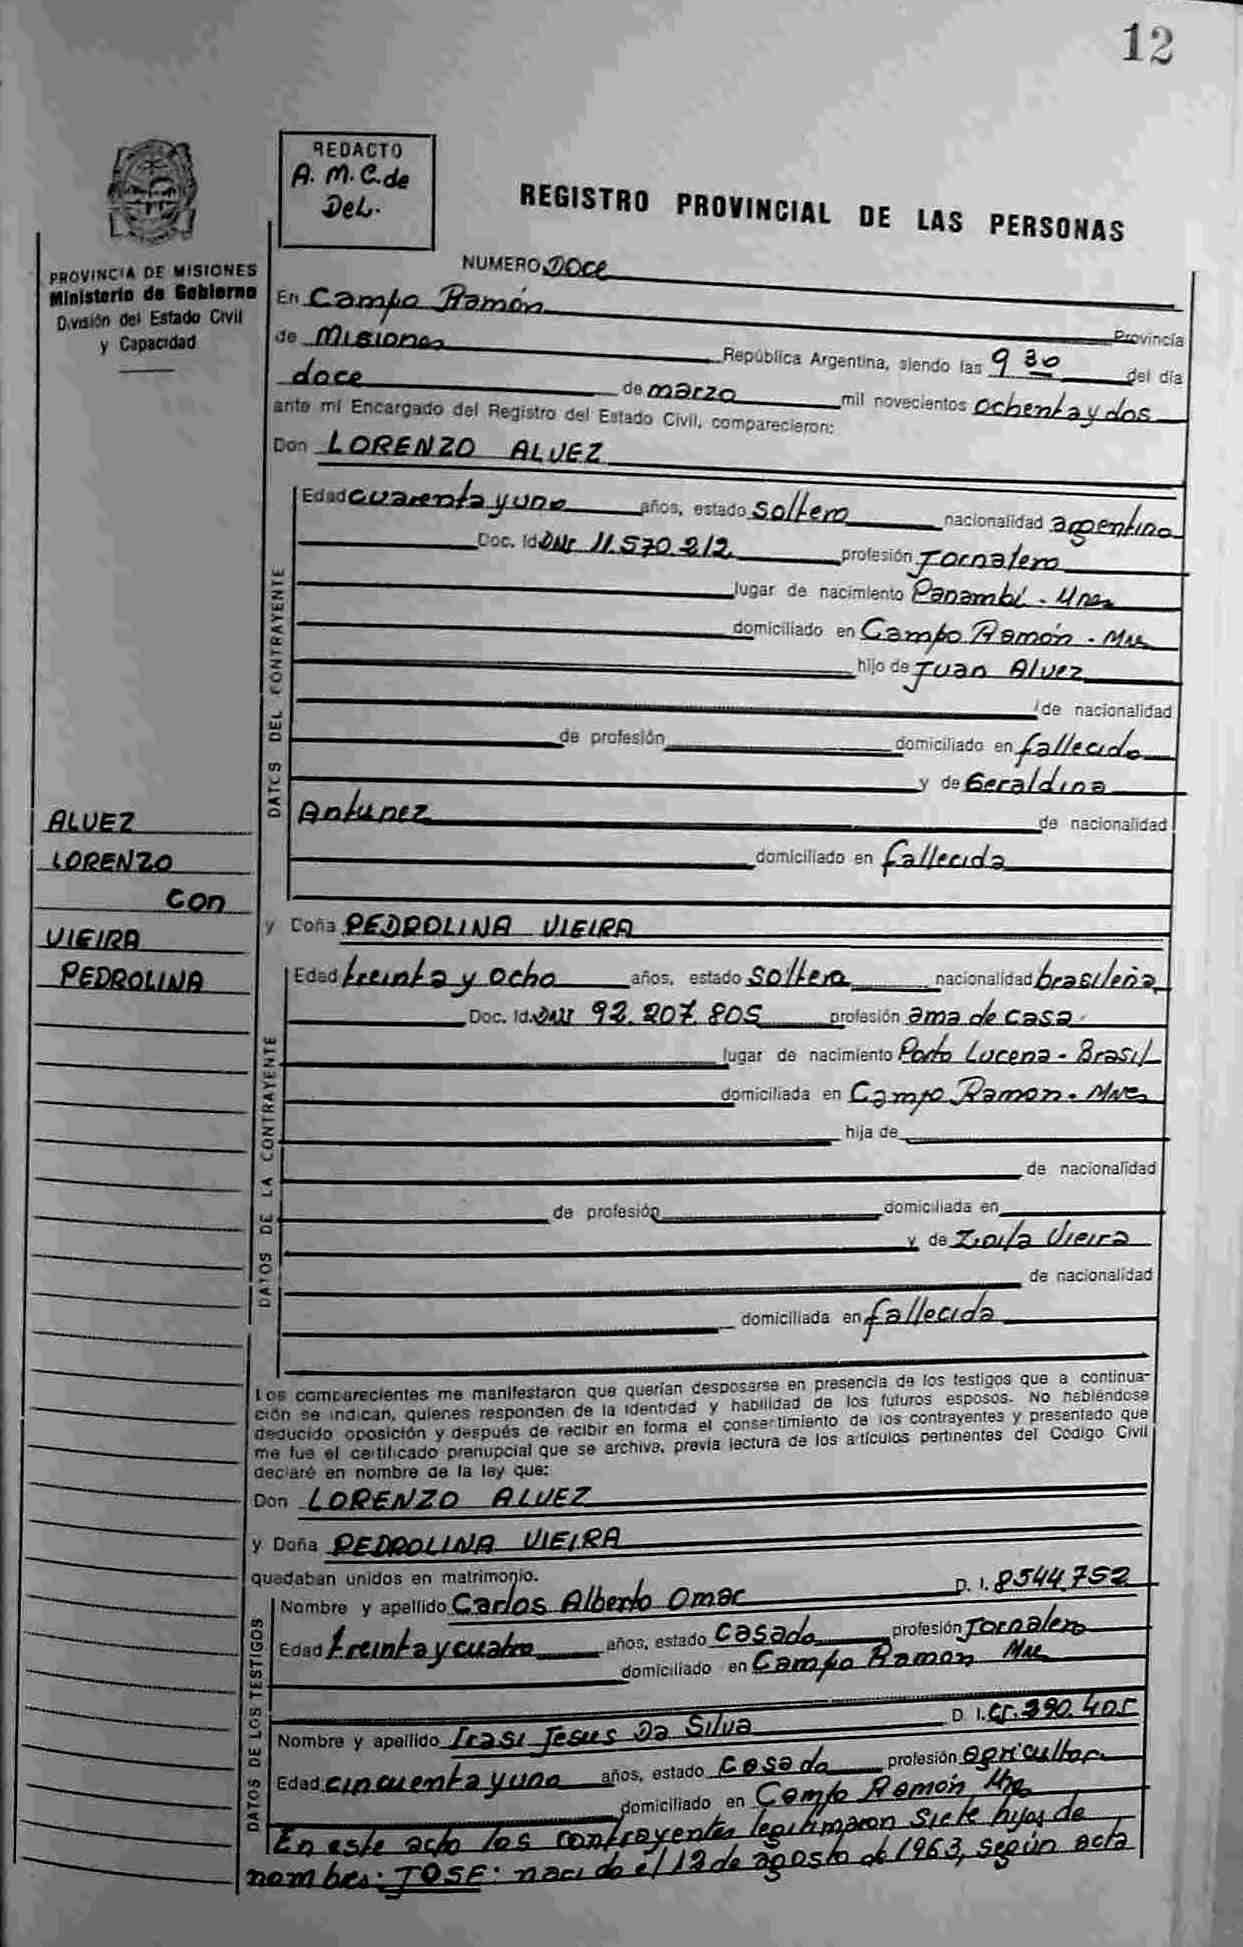 12
REDACTO
A. M. C. de
DeL.
REGISTRO PROVINCIAL DE LAS PERSONAS
PROVINCIA DE MISIONES
Ministerio de Gobierno
División del Estado Civil
y Capacidad
NUMERO Doce
En Campo Ramón Provincia
de Misiones República Argentina, siendo las 9 30 del día
doce de marzo mil novecientos ochenta y dos
ante mí Encargado del Registro del Estado Civil, comparecieron:
Don LORENZO ALVEZ
DATOS DEL CONTRAYENTE
Edad cuarenta y uno años, estado soltero nacionalidad argentino
Doc. Id. DNI 11.570.212 profesión Jornalero
lugar de nacimiento Panambí - Mnes
domiciliado en Campo Ramón - Mnes
hijo de Juan Alvez
de nacionalidad
de profesión domiciliado en fallecido
y de Geraldina
Antunez de nacionalidad
domiciliado en fallecida
ALVEZ
LORENZO
con
VIEIRA
PEDROLINA
y Doña PEDROLINA VIEIRA
DATOS DE LA CONTRAYENTE
Edad treinta y ocho años, estado soltera nacionalidad brasileña
Doc. Id. DNI 92.207.805 profesión ama de casa
lugar de nacimiento Porto Lucena - Brasil
domiciliada en Campo Ramon - Mnes
hija de
de nacionalidad
de profesión domiciliada en
y de Vieira
de nacionalidad
domiciliada en fallecida
Los comparecientes me manifestaron que querían desposarse en presencia de los testigos que a continua-
ción se indican, quienes responden de la identidad y habilidad de los futuros esposos. No habiéndose
deducido oposición y después de recibir en forma el consentimiento de los contrayentes y presentado que
me fue el certificado prenupcial que se archiva, previa lectura de los artículos pertinentes del Código Civil
declaré en nombre de la ley que:
Don LORENZO ALVEZ
y Doña PEDROLINA VIEIRA
quedaban unidos en matrimonio.
DATOS DE LOS TESTIGOS
Nombre y apellido Carlos Alberto Omar D. I. 8544.752
Edad treinta y cuatro años, estado Casado profesión Jornalero
domiciliado en Campo Ramon Mnes
Nombre y apellido Irasi Jesus Da Silva D. I. 390.405
Edad cincuenta y uno años, estado Casado profesión agricultor
domiciliado en Campo Ramón Mnes
En este acto los contrayentes legitimaron siete hijos de
nombres: JOSE: nacido el 12 de agosto de 1963, según acta